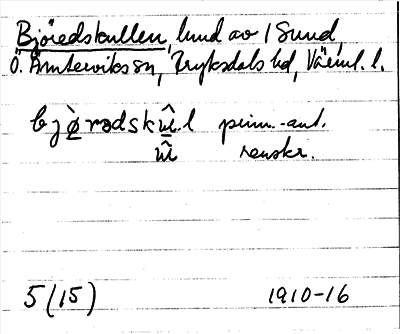 Björedskullen, lund av 1 Sund,
Ö. Ämterviks sn, Fryksdals hd, Värml. l.
bjø̀rədskûl.l prim.-ant.
renskr.
5(15) 1910-16